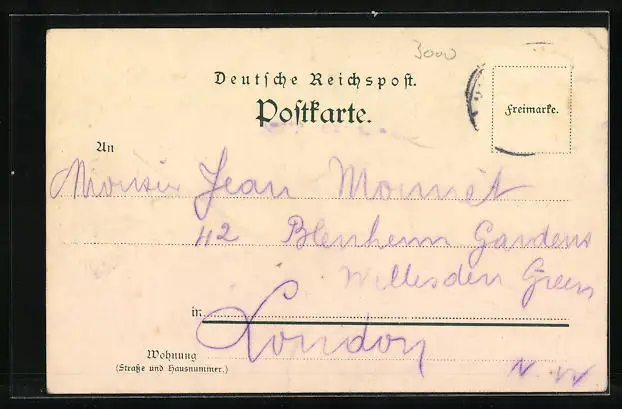 3000
Deutsche Reichspost.
Postkarte.
Freimarke.
An
Monsieur Jean Monnet
42 Blenheim Gardens
Willesden Green
in
London
N. W.
Wohnung
(Straße und Hausnummer.)